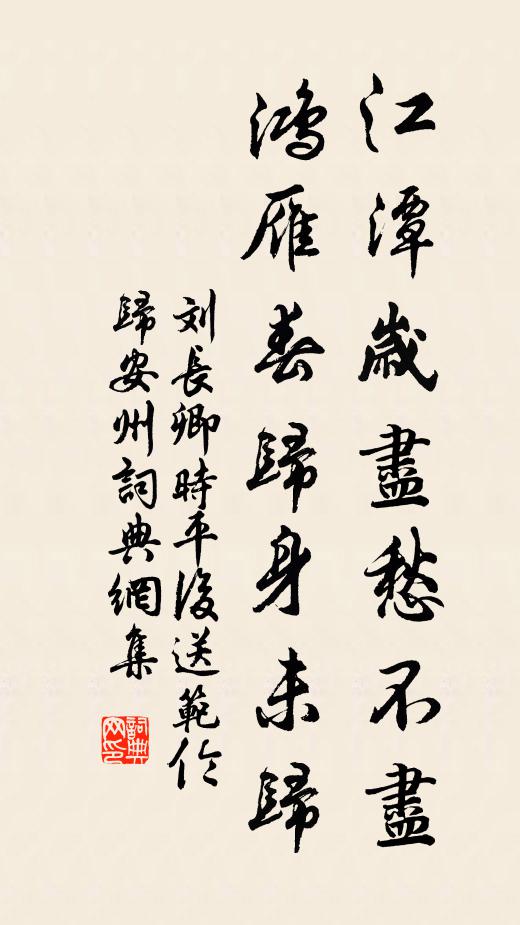 江潭歲盡愁不盡
鴻雁春歸身未歸
刘長卿時平後送範伦
歸安州詞典網集
詞典网印